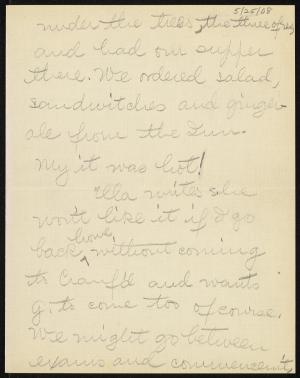 5/25/08
under the trees, the three of us,
and had our supper
there. We ordered salad,
sandwitches and ginger-
ale from the Inn.
My it was hot!
Ella writes she
won't like it if I go
back home without coming
to and wants
G. to come too of course.
We might go between
exams and commencement,